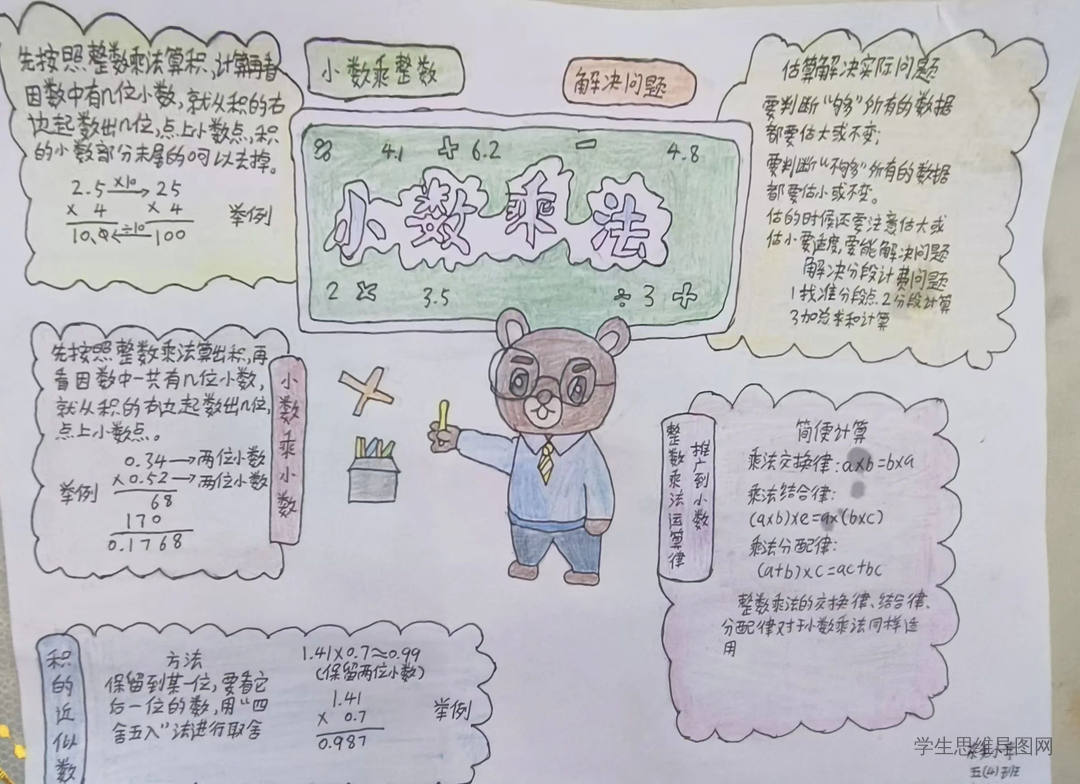 小数乘整数
解决问题
先按照整数乘法算积,计算再看
因数中有几位小数,就从积的右
边起数出几位,点上小数点,积
的小数部分末尾的0可以去掉。
2.5 ×10→ 25
× 4 × 4
10.0 ←÷10 100
举例
% 4.1 + 6.2 - 4.8
小数乘法
2 × 3.5 ÷ 3 +
估算解决实际问题
要判断“够”所有的数据
都要估大或不变;
要判断“不够”所有的数据
都要估小或不变。
估的时候还要注意估大或
估小要适度,要能解决问题
解决分段计费问题
1找准分段点.2分段计算
3加总求和计算
先按照整数乘法算出积,再
看因数中一共有几位小数,
就从积的右边起数出几位,
点上小数点。
0.34→两位小数
×0.52→两位小数
举例
68
170
0.1768
小数乘小数
整数乘法运算律
推广到小数
简便计算
乘法交换律:a×b=b×a
乘法结合律:
(a×b)×e=a×(b×c)
乘法分配律:
(a+b)×c=ac+bc
整数乘法的交换律、结合律、
分配律对于小数乘法同样适
用
积的近似数
方法
保留到某一位,要看它
后一位的数,用“四
舍五入”法进行取舍
1.41×0.7≈0.99
(保留两位小数)
1.41
× 0.7
0.987
举例
学生思维导图网
五(4)班